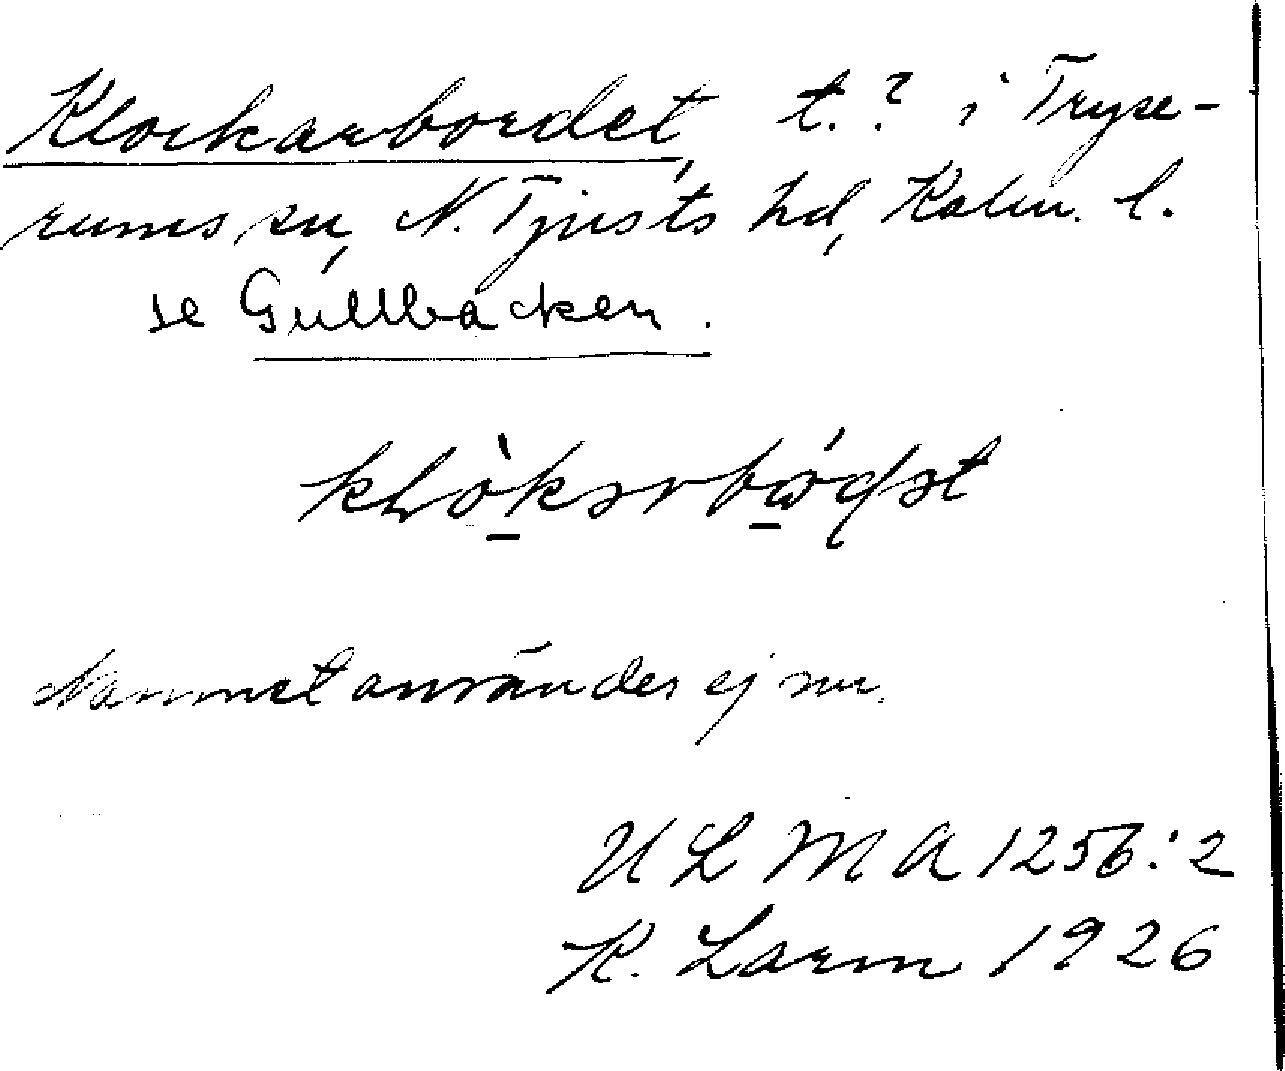 Klockarbordet, t.? i Tryse-
rums sn, N. Tjusts hd, Kalm. l.
se Gullbacken.
Namnet användes ej nu.
ULMA 1256:2
K. Larm 1926